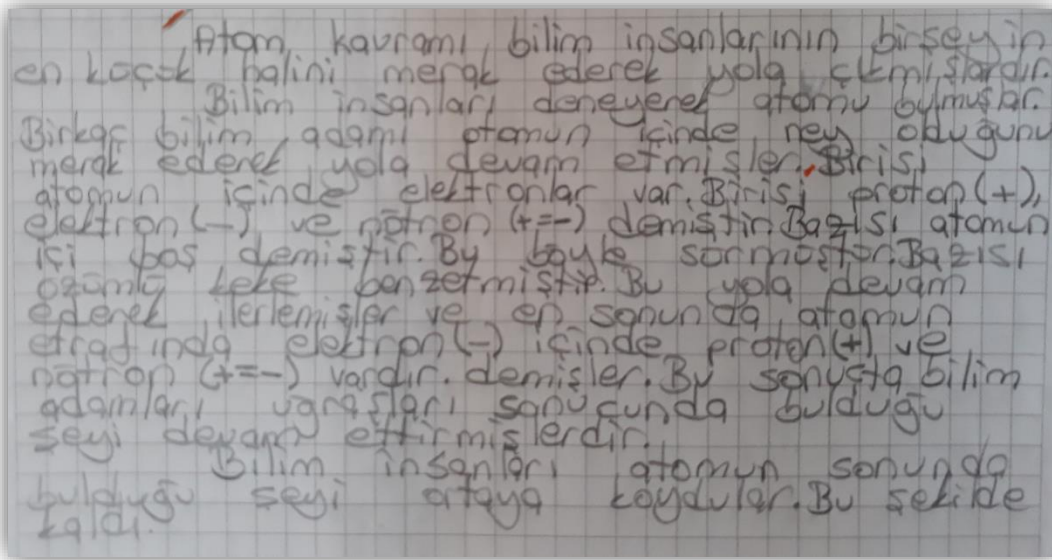 Atom kavramı bilim insanlarının birşeyin
en küçük halini merak ederek yola çıkmışlardır.
Bilim insanları deneyerek atomu bulmuşlar.
Birkaç bilim adamı atomun içinde ney oduğunu
merak ederek yola devam etmişler. Birisi
atomun içinde elektronlar var. Birisi proton(+),
elektron(-) ve nötron (+=-) demiştir. Bazısı atomun
içi boş demiştir. Bu böyle sürmüştür. Bazısı
üzümlü keke benzetmiştir. Bu yola devam
ederek ilerlemişler ve en sonunda atomun
etrafında elektron(-) içinde proton(+) ve
nötron (+=-) vardır. demişler. Bu sonuçta bilim
adamları uğraşları sonucunda bulduğu
şeyi devam ettirmişlerdir.
Bilim insanları atomun sonunda
bulduğu şeyi ortaya koydular. Bu şekilde
kaldı.